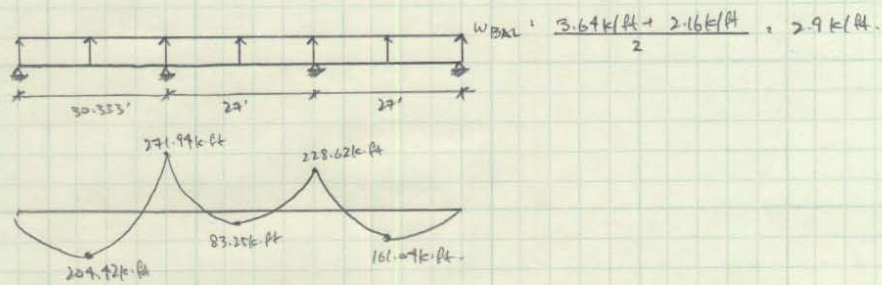 WBAL : 3.64 k/ft + 2.16 k/ft / 2 = 2.9 k/ft.
30.333' 27' 27'
271.94 k.ft
228.62 k.ft
83.25 k.ft
161.04 k.ft.
204.42 k.ft